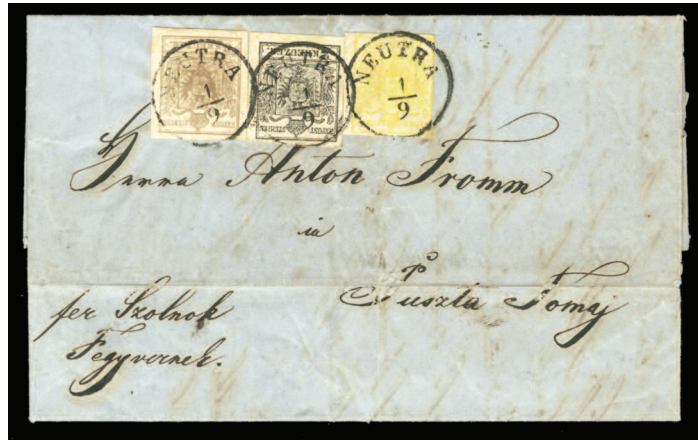 NEUTRA
1/9
NEUTRA
1/9
NEUTRA
1/9
KREUZER
Herrn Anton Fromm
in
Puszta Tomaj
per Szolnok
Fegyvernek.